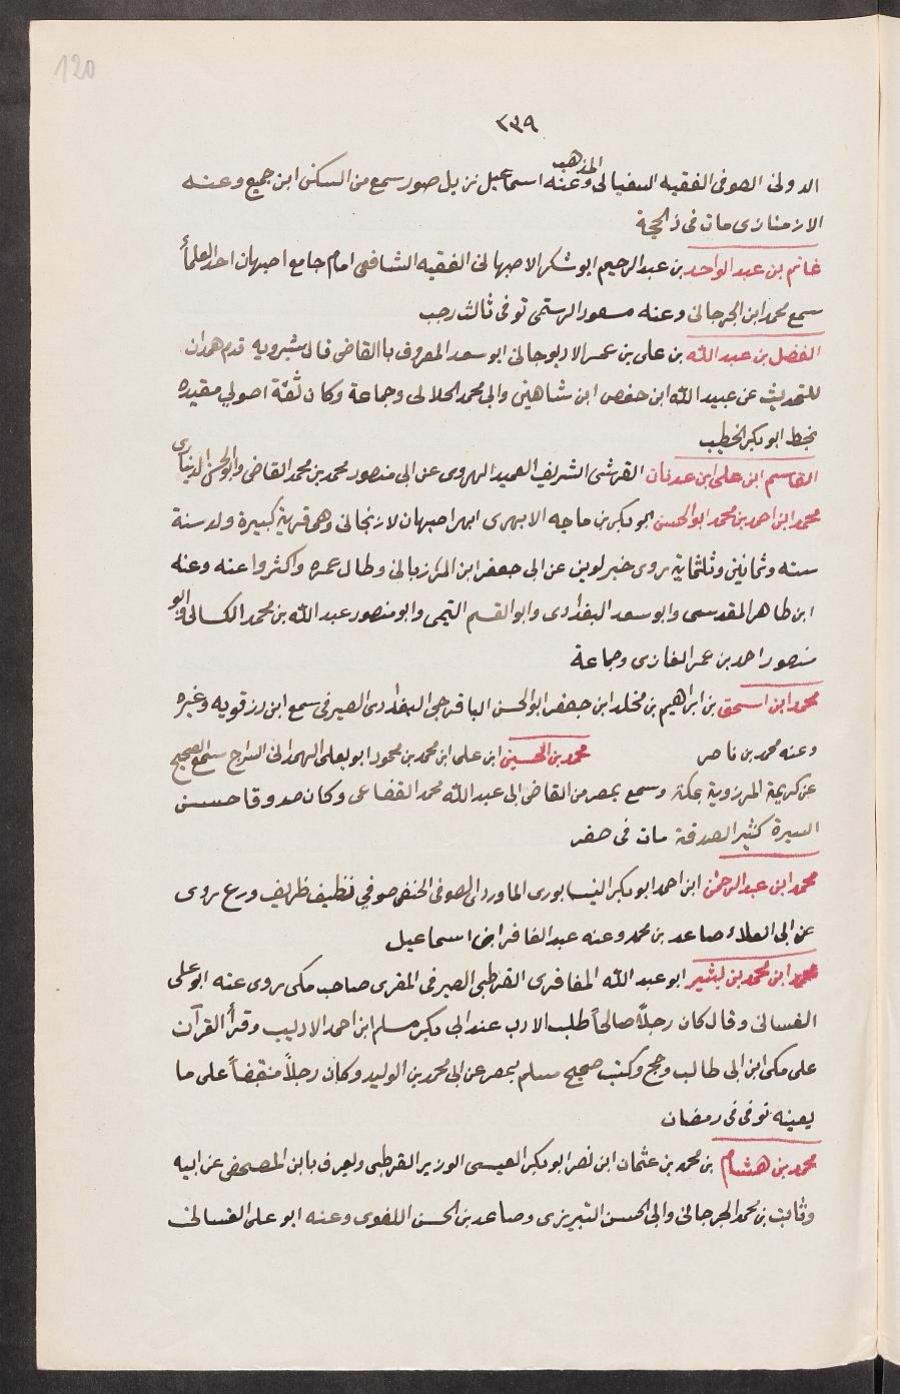 120
٢٣٩
الدولى الصوفى الفقيه السفيانى المذهب وعنه اسماعيل نزيل صور سمع من السكن ابن جميع وعنه
الارمنازى مات فى ذالحجة
غانم بن عبد الواحد بن عبد الرحيم ابو شكر الاصبهانى الفقيه الشافعى امام جامع اصبهان احد العلمأ
سمع محمد ابن الجرجانى وعنه مسعود الرستمى توفى ثالث رجب
الفضل بن عبد الله بن على بن عمر الابو جانى ابو سعد المعروف باالقاضى قال شيرويه قدم همدان
للتحديث عن عبيد الله ابن حفص ابن شاهين وابى محمد الخلالى وجماعة وكان ثقة اصولى مقيده
بخط ابو بكر الخطيب
القاسم ابن على ابن عدنان القرشى الشريف العميد الهروى عن ابى منصور محمد بن محمد القاضى وابو الحسن الديناى
محمد ابن احمد بن محمد ابو الحسن ابو بكر بن ماجه الابهرى ابهر اصبهان لا زنجانى وهى قرية كبيرة ولد سنة
سته وثمانين وثلثماية روى خبر لوين عن ابى جعفر ابن المرزبانى وطال عمره واكثروا عنه وعنه
ابن طاهر المقدسى وابو سعد البغدادى وابو القسم التيمى وابو منصور عبد الله بن محمد الكسائى وابو
منصور احمد بن عمر الغازى وجماعة
محمد ابن اسحق بن ابراهيم بن مخلد ابن جعفر ابو الحسن الباقرجى البغدادى الصيرفى سمع ابن رزقويه وغيره
وعنه محمد بن ناصر محمد بن الحسين ابن على ابن محمد بن محمود ابو يعلى الهمدانى السراج سمع الصحيح
عن كريمة المرزوية بمكة وسمع بمصر من القاضى ابى عبد الله محمد القضاعى وكان صدوقا حسن
السيرة كثير الصدقة مات فى صفر
محمد ابن عبد الرحمن ابن احمد ابو بكر النيسابورى الماوردى الصوفى الحنفى صوفي نظيف ظريف ورع روى
عن ابى العلاء صاعد بن محمد وعنه عبد الغافر ابن اسماعيل
محمد ابن محمد بن بشير ابو عبد الله المغافرى القرطبى الصيرفى المقرى صاحب مكى روى عنه ابو على
الغسانى وقال كان رجلاً صالحاً طلب الادب عند ابى بكر مسلم ابن احمد الاديب وقرأ القرآن
على مكى ابن ابى طالب وحج وكتب صحيح مسلم بمصر عن ابى محمد بن الوليد وكان رجلاً منقبضاً على ما
يعينه توفى فى رمضان
محمد بن هشام بن محمد بن عثمان ابن نصر ابو بكر العيسى الوزير القرطبى ويعرف بابن المصحفى عن ابيه
وثابت بن محمد الجرجانى وابى الحسن التبريزى وصاعد بن الحسن اللغوى وعنه ابو على الغسانى